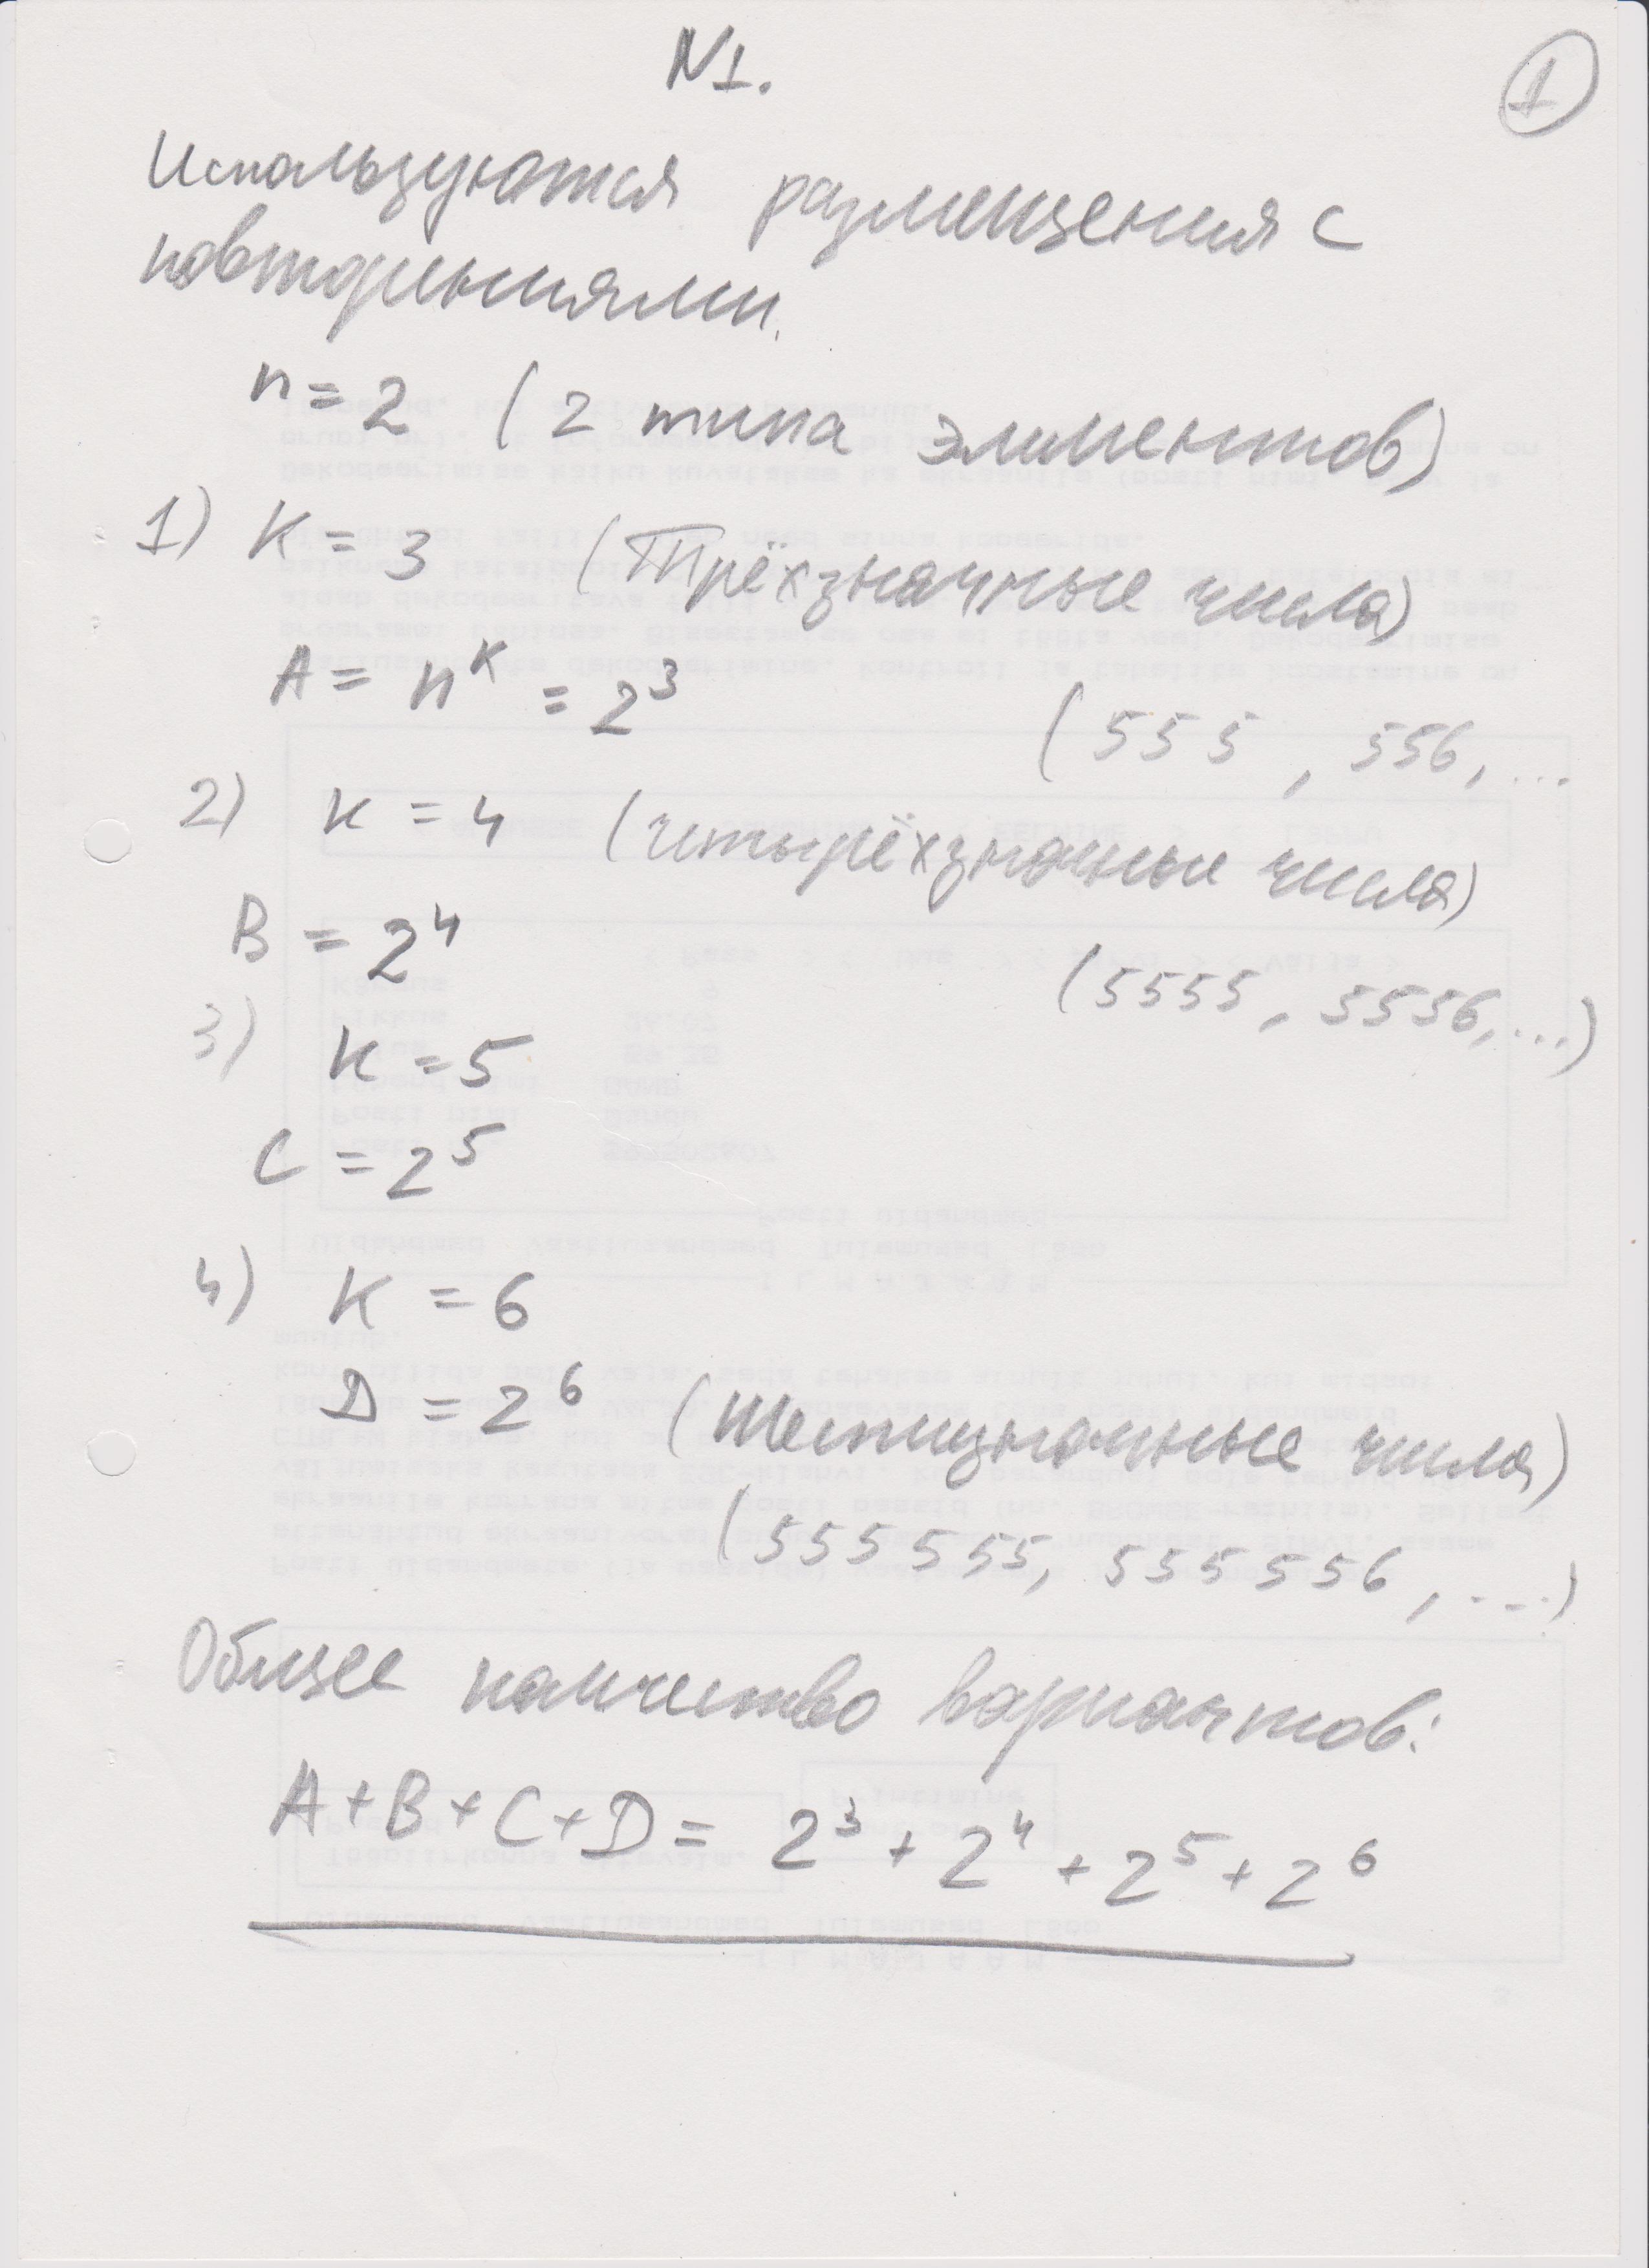 N1.
1
Используются размещения с
повторениями.
n = 2 (2 типа элементов)
1) K = 3 (Трёхзначные числа)
A = n^K = 2^3
(555, 556, ...
2) K = 4 (четырёхзначные числа)
B = 2^4
(5555, 5556, ...)
3) K = 5
C = 2^5
4) K = 6
D = 2^6 (Шестизначные числа)
(555555, 555556, ...)
Общее количество вариантов:
A + B + C + D = 2^3 + 2^4 + 2^5 + 2^6